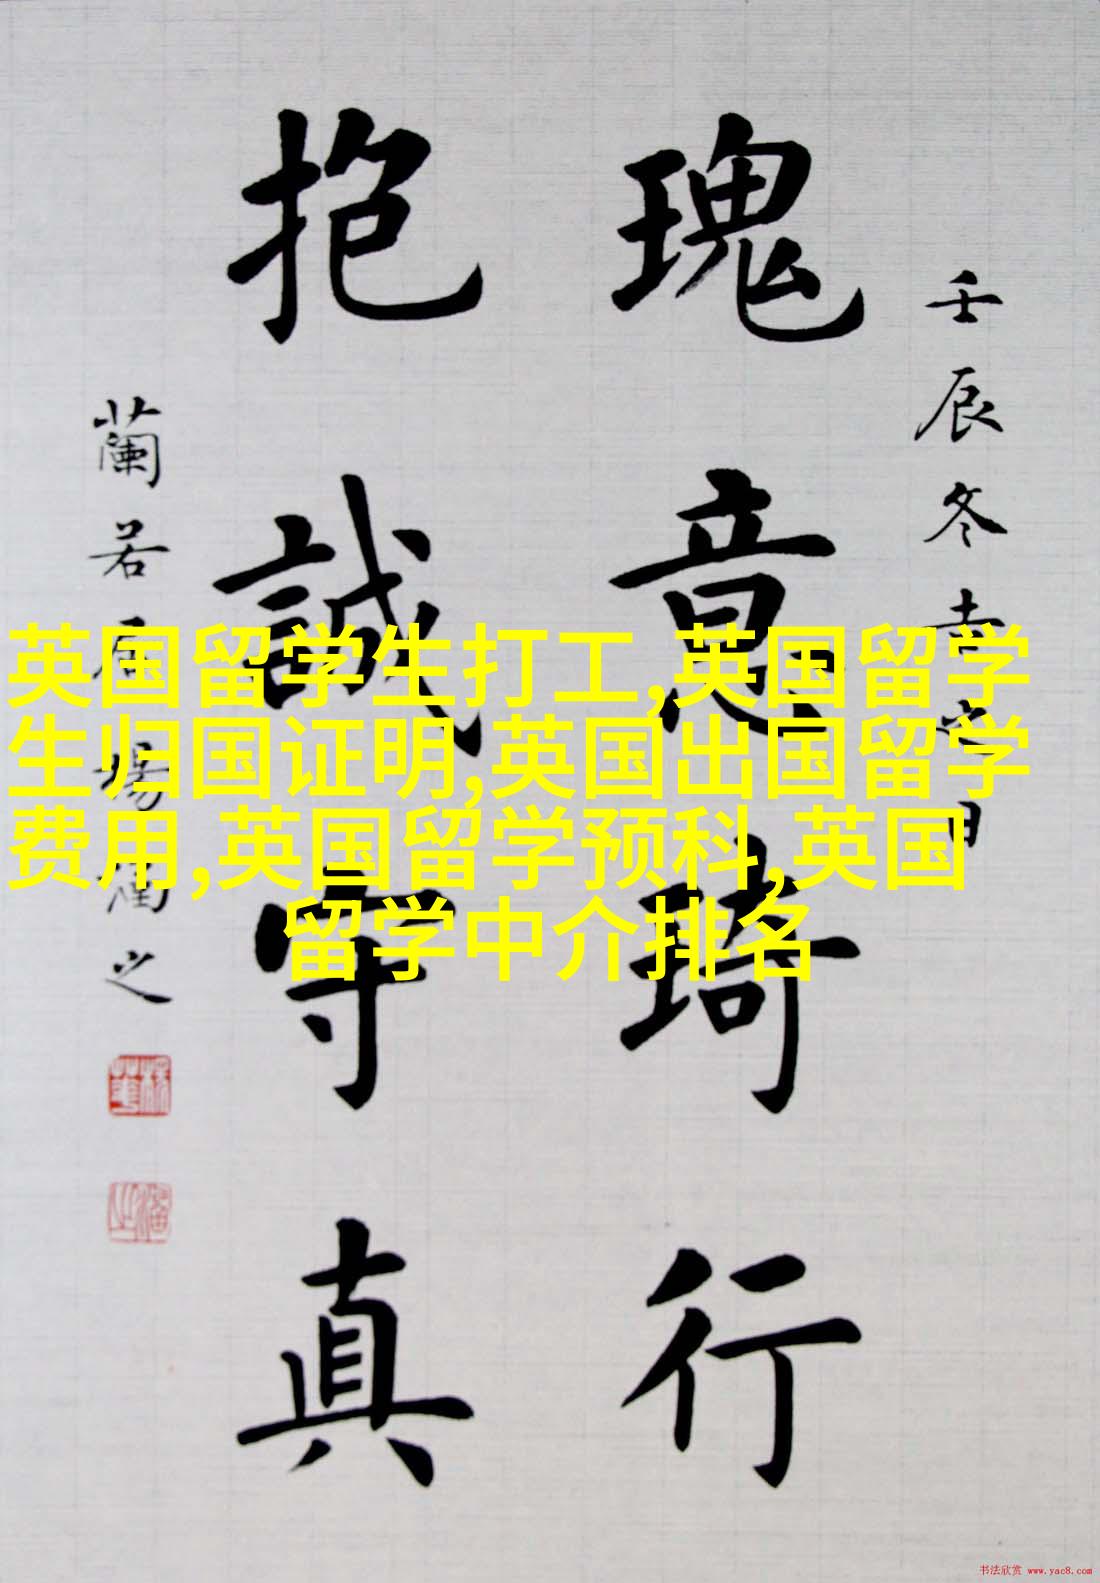 壬辰冬吉之日
瑰意琦行
抱誠守真
蘭若居楊潘之
英国留学生打工,英国留学
生归国证明,英国出国留学
费用,英国留学预科,英国
留学中介排名
书法欣赏 www.yac8.com